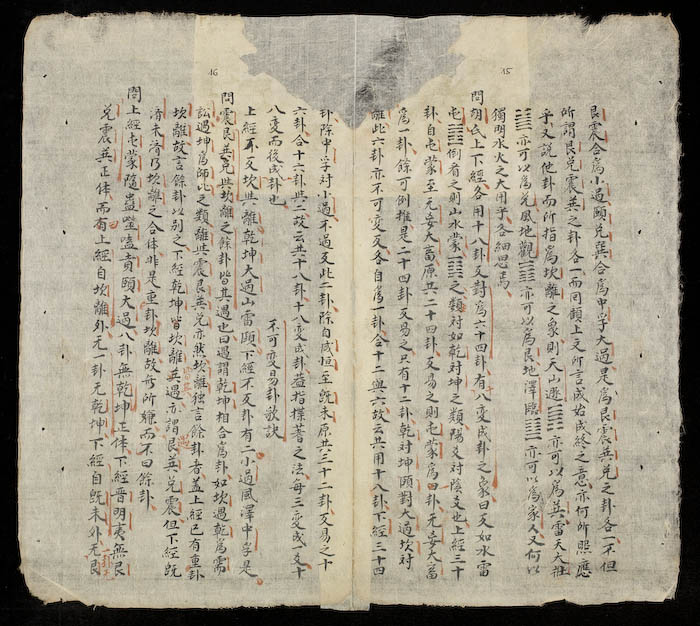 艮震合為小過頤兌巽合為中孚大過是為艮震巽兌之卦各一不但
所謂艮兌震巽之卦各一而同顧上文所言成始成終之意亦何所照應
乎又說他卦而所指為坎離之象則天山遯䷠亦可以為巽雷天大壯
䷡亦可以為兌風地觀䷓亦可以為艮地澤臨䷒亦可以為人又何以
獨明水火之大用乎各細思焉
問胡氏上下經各用十八卦反對為六十四卦有八變成卦之象曰反如水雷
屯䷂倒看之則山水蒙䷃之類對如乾對坤之類陽爻對陰爻也上經三十
卦自屯蒙至无妄大畜原共二十四卦反易之則屯蒙為一卦无妄大畜
為一卦餘可例推是二十四卦反易之只有十二卦乾對坤頤對大過坎對
離此六卦亦不可變反各自為一卦合十二與六故云共用十八卦下經三十四
卦除中孚對小過不過反此二卦除自咸恒至既未原共三十二卦反易之十
六卦合十六卦共二故云共十八卦十八變成卦蓋指揲蓍之法每三變成一爻十
八變而後成卦也 不可變易卦歌訣
上經不反坎共離乾坤大過山雷頤下經不反卦有二小過風澤中孚是
問震艮巽兌與坎離之餘卦皆其遇也曰遇謂乾坤相合為卦如坎遇乾為需
訟遇坤為師比之類離與震艮巽兌亦然坎離獨言餘卦者蓋上經已有重卦
坎離故言餘卦以別之下經乾坤皆坎離與遇亦謂艮巽兌震但下經既
濟未濟乃坎離之合体非是重卦坎離故無所嫌而不曰餘卦
問上經屯蒙隨蠱噬嗑賁頤大過八卦無乾坤正体下經晉明夷無艮
兌震巽正体而有上經自坎離外无一卦无乾坤下經自既未外无艮
15
16